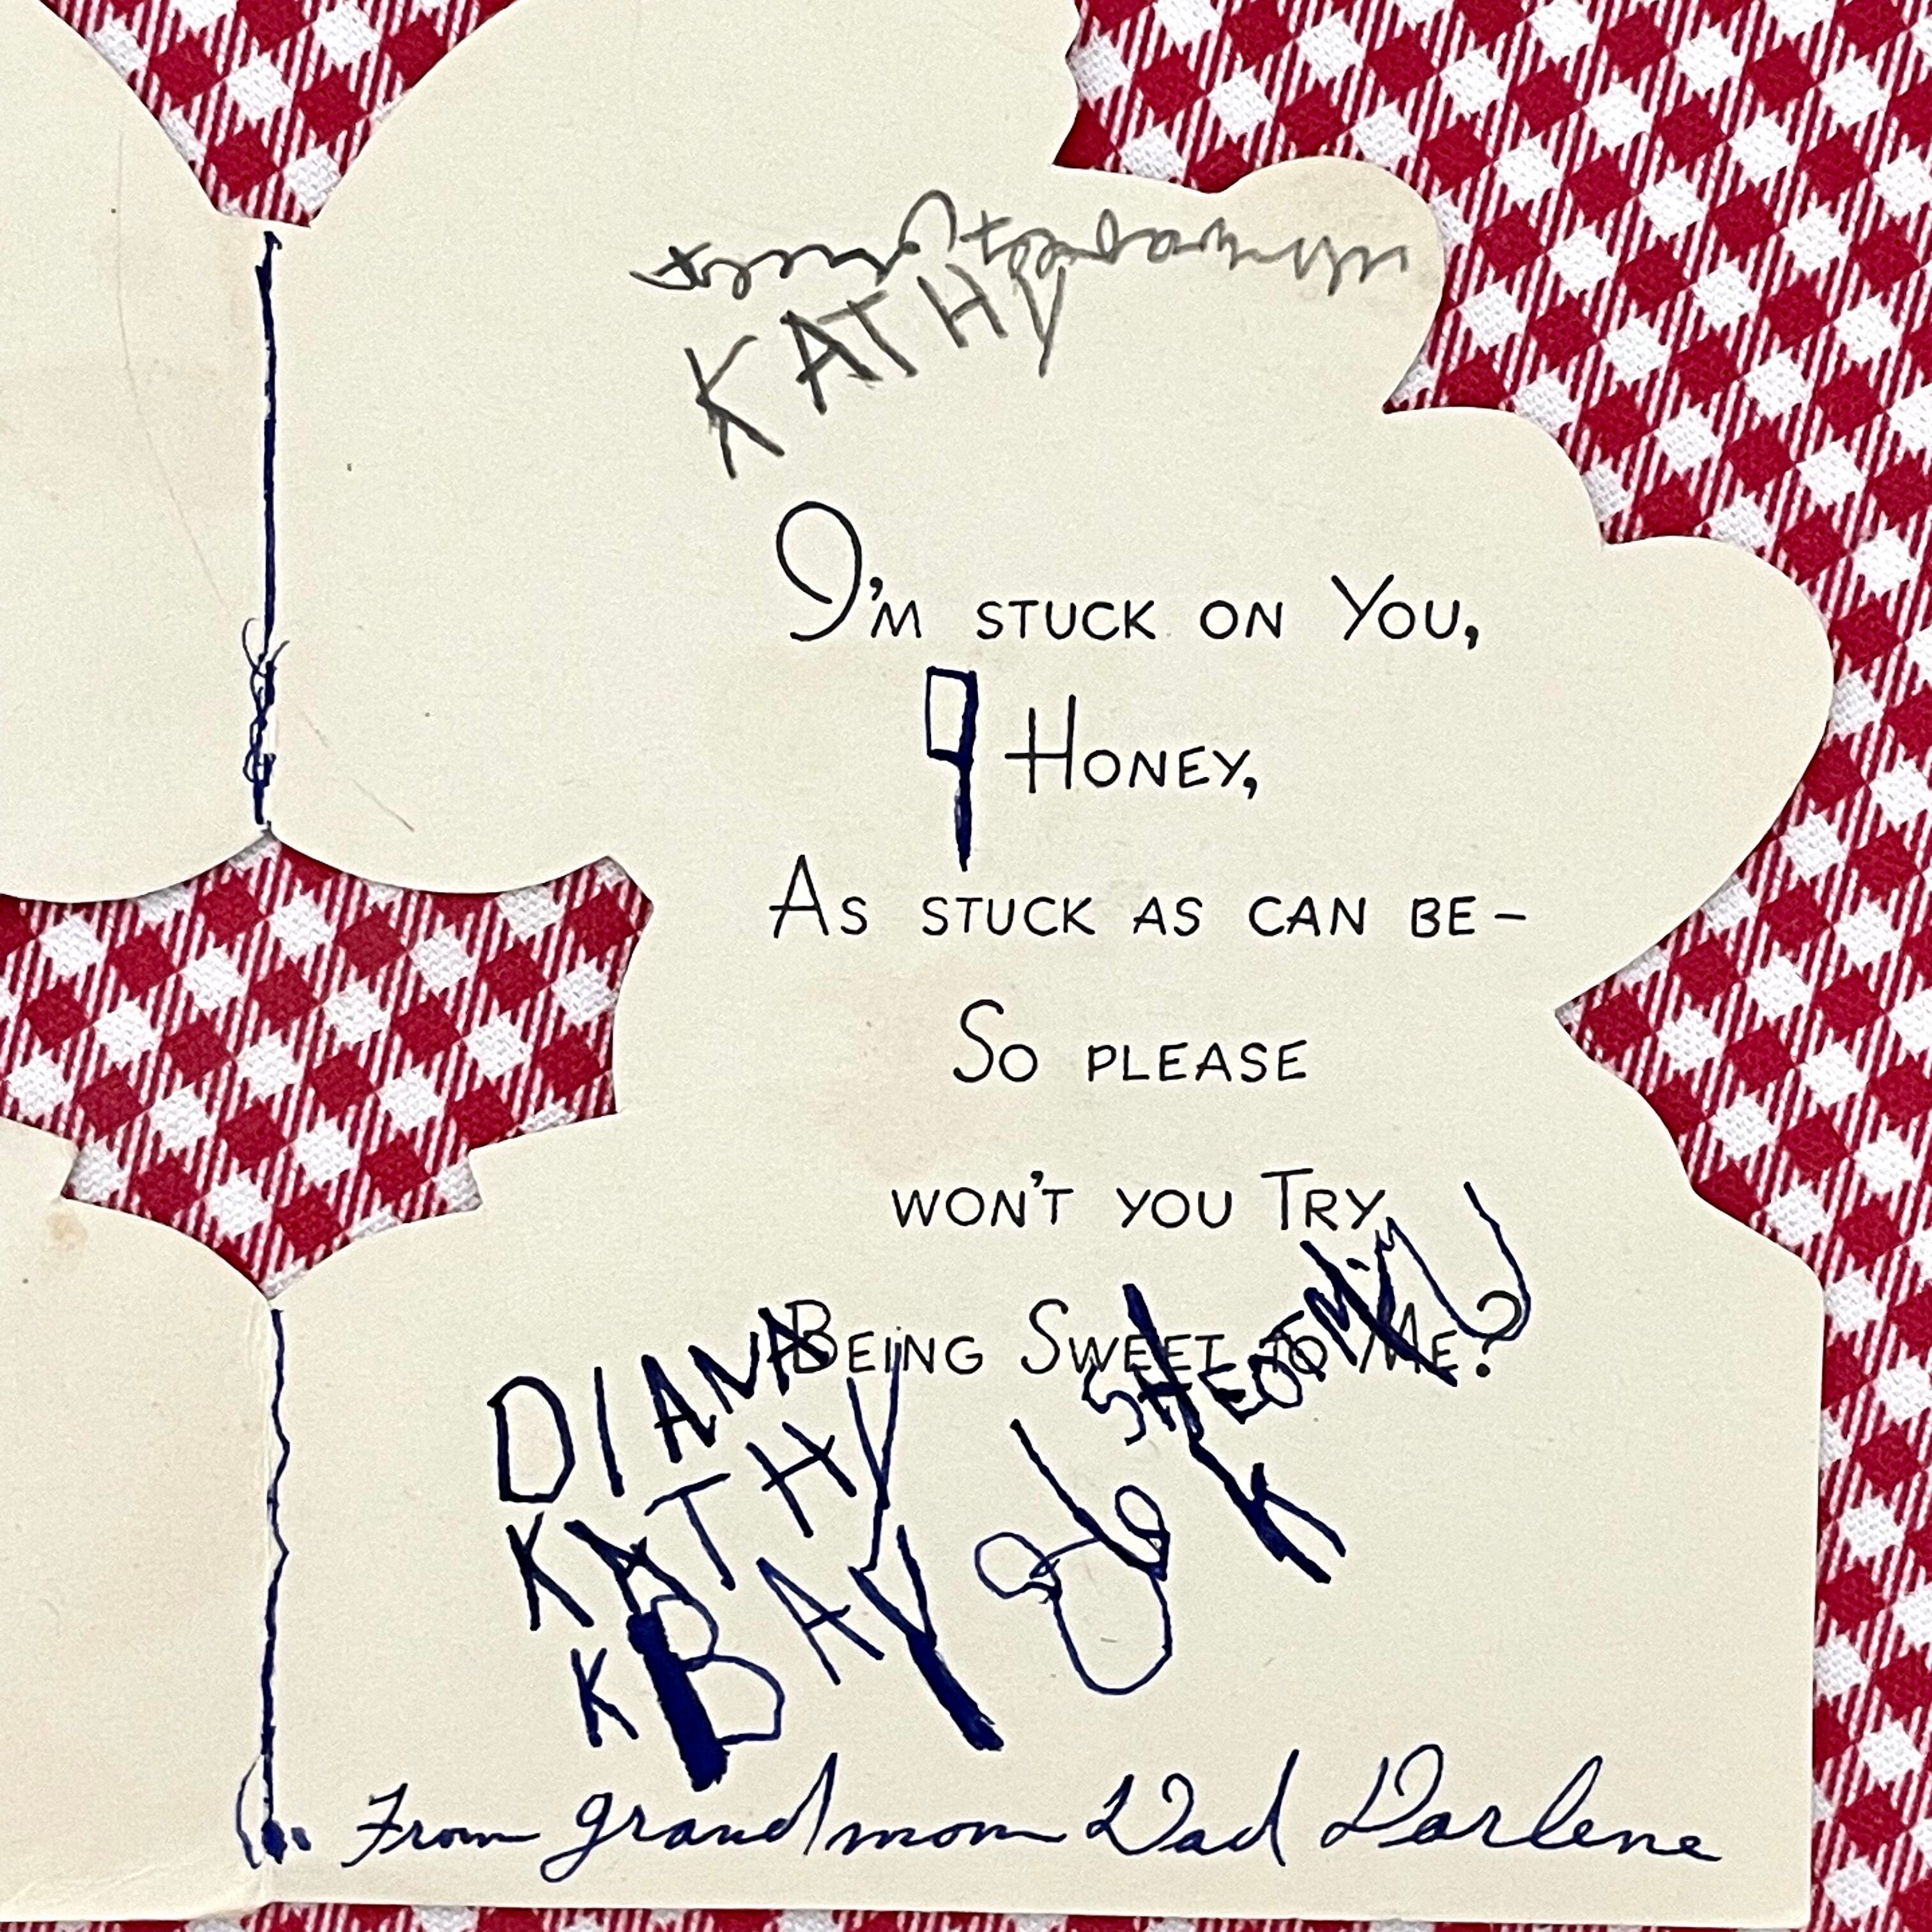 KATHY
I'M STUCK ON YOU,
9 HONEY,
AS STUCK AS CAN BE-
SO PLEASE
WON'T YOU TRY
BEING SWEET TO ME?
DIANA
KATHY
K BAY
K
From grandmom Dad Darlene